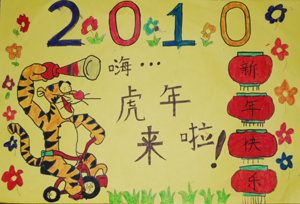 2010
嗨…
虎年
来啦!
新年快乐